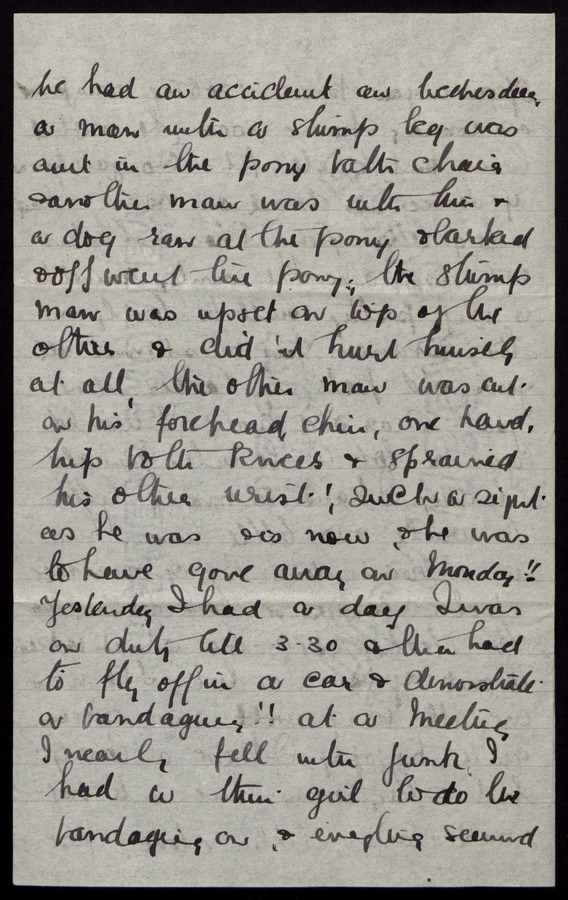 he had an accident on Wednesday
a man with a stump leg was
out in the pony bath chair
& another man was with him &
a dog ran at the pony & barked
& off went the pony; the stump
man was upset on top of the
other & did'nt hurt himself
at all, the other man was cut
on his forehead chin, one hand,
hip both knees & sprained
his other wrist!, such a sight
as he was & is now, & he was
to have gone away on Monday!!
Yesterday I had a day I was
on duty till 3-30 & then had
to fly off in a car & demonstrate
a bandaging!! at a Meeting
I nearly fell with funk, I
had a thin girl to do the
bandaging on, & everything seemed